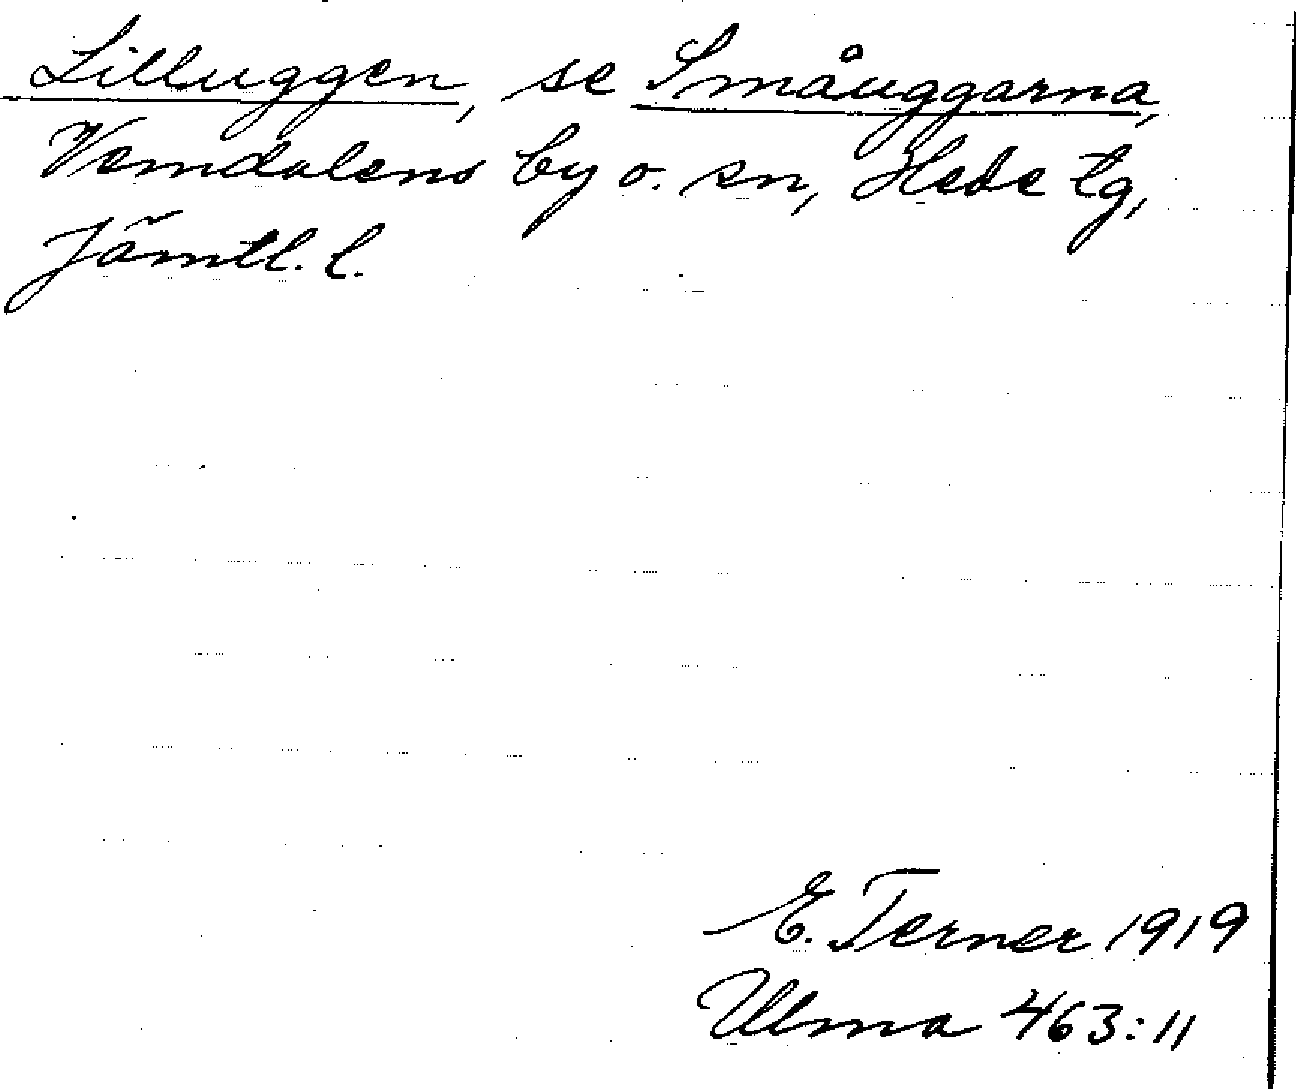 Lilluggen, se Småuggarna,
Vemdalens by o. sn, Hede tg,
Jämtl. l.
E. Terner 1919
Ulma 463:11